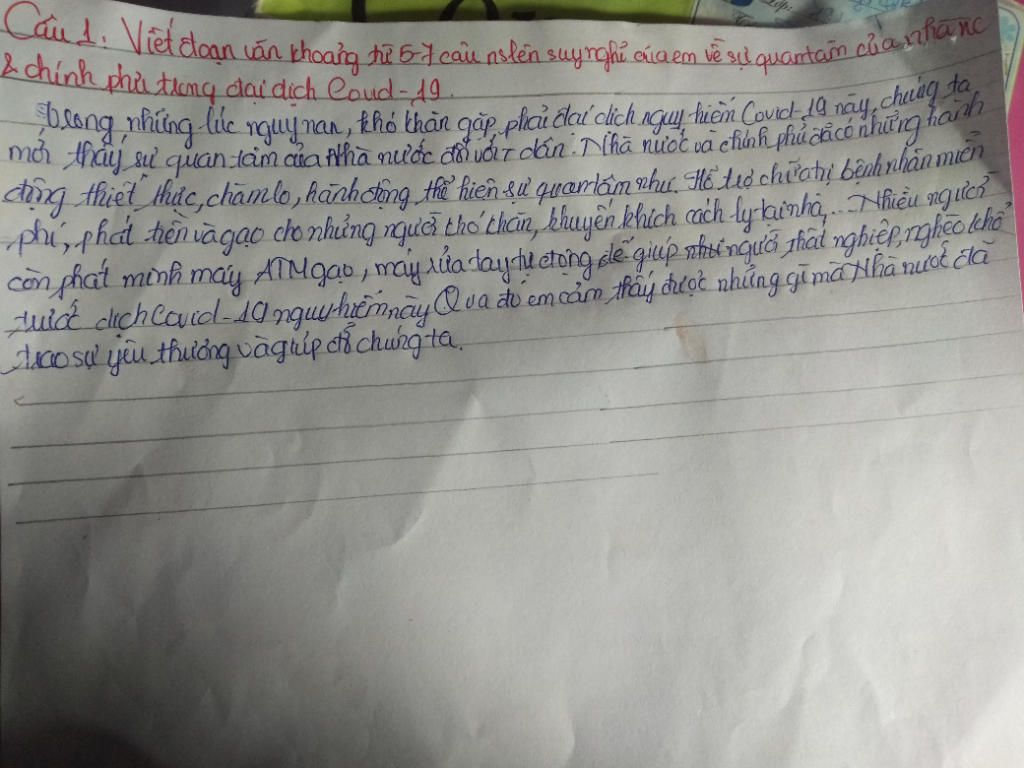 Câu 1. Viết đoạn văn khoảng từ 5-7 câu nslên suy nghĩ của em về sự quan tâm của nhà nc
& chính phủ trong đại dịch Covid-19.
Trong những lúc nguy nan, khó khăn gặp phải đại dịch nguy hiểm Covid-19 này, chúng ta
mới thấy sự quan tâm của Nhà nước đối với dân. Nhà nước và chính phủ đã có những hành
động thiết thực, chăm lo, hành động thể hiện sự quan tâm như. Hỗ trợ chữa trị bệnh nhân miễn
phí, phát tiền và gạo cho những người khó khăn, khuyến khích cách ly tại nhà,... Nhiều người
còn phát minh máy ATM gạo, máy rửa tay tự động để giúp người thất nghiệp, nghèo khổ
trước dịch Covid-19 nguy hiểm này Qua đó em cảm thấy được những gì mà Nhà nước đã
trao sự yêu thương và giúp đỡ chúng ta.